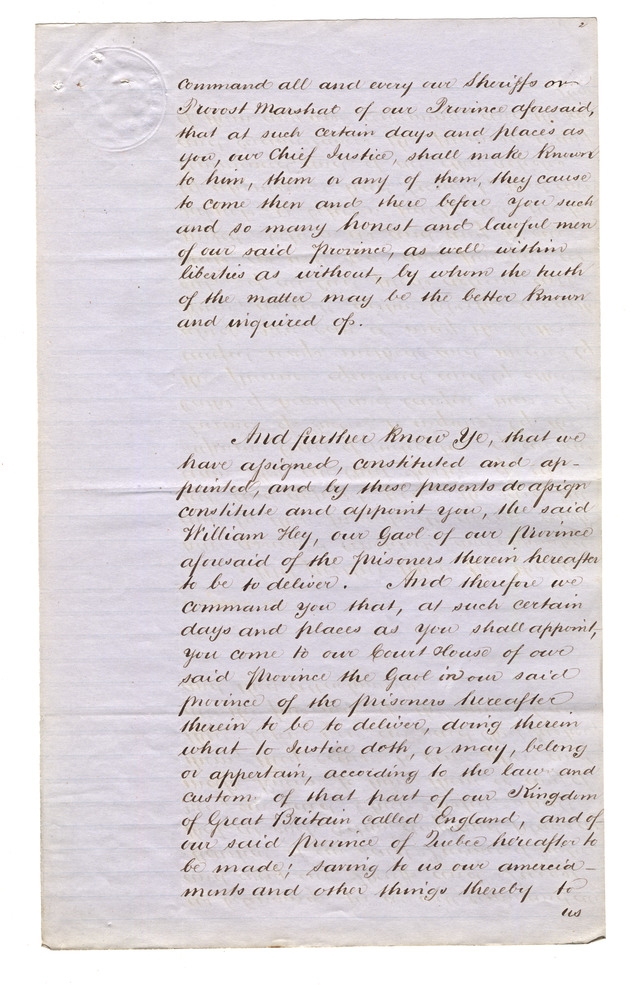 2
command all and every our Sheriffs or
Provost Marshal of our Province aforesaid,
that at such certain days and places as
you, our Chief Justice, shall make known
to him, them or any of them, they cause
to come then and there before you such
and so many honest and lawful men
of our said Province, as well within
liberties as without, by whom the truth
of the matter may be the better known
and inquired of.
And further Know Ye, that we
have assigned, constituted and ap-
pointed, and by these presents do assign
constitute and appoint you, the said
William Hey, our Gaol of our Province
aforesaid of the prisoners therein hereafter
to be to deliver. And therefore we
command you that, at such certain
days and places as you shall appoint,
you come to our Court House of our
said Province the Gaol in our said
Province of the prisoners hereafter
therein to be to deliver, doing therein
what to Justice doth, or may, belong
or appertain, according to the law and
custom of that part of our Kingdom
of Great Britain called England, and of
our said province of Quebec hereafter to
be made; saving to us our amercia-
ments and other things thereby to
us